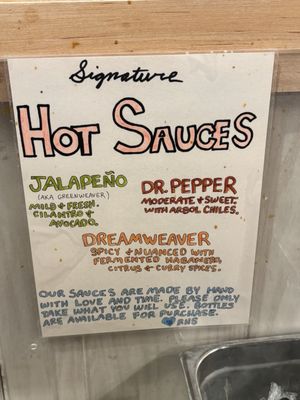 Signature
HOT SAUCES
JALAPEÑO
(AKA GREENWEAVER)
MILD & FRESH.
CILANTRO &
AVOCADO.
DR. PEPPER
MODERATE & SWEET.
WITH ARBOL CHILES.
DREAMWEAVER
SPICY & NUANCED WITH
FERMENTED HABANERO,
CITRUS & CURRY SPICES.
OUR SAUCES ARE MADE BY HAND
WITH LOVE AND TIME. PLEASE ONLY
TAKE WHAT YOU WILL USE. BOTTLES
ARE AVAILABLE FOR PURCHASE.
RNS